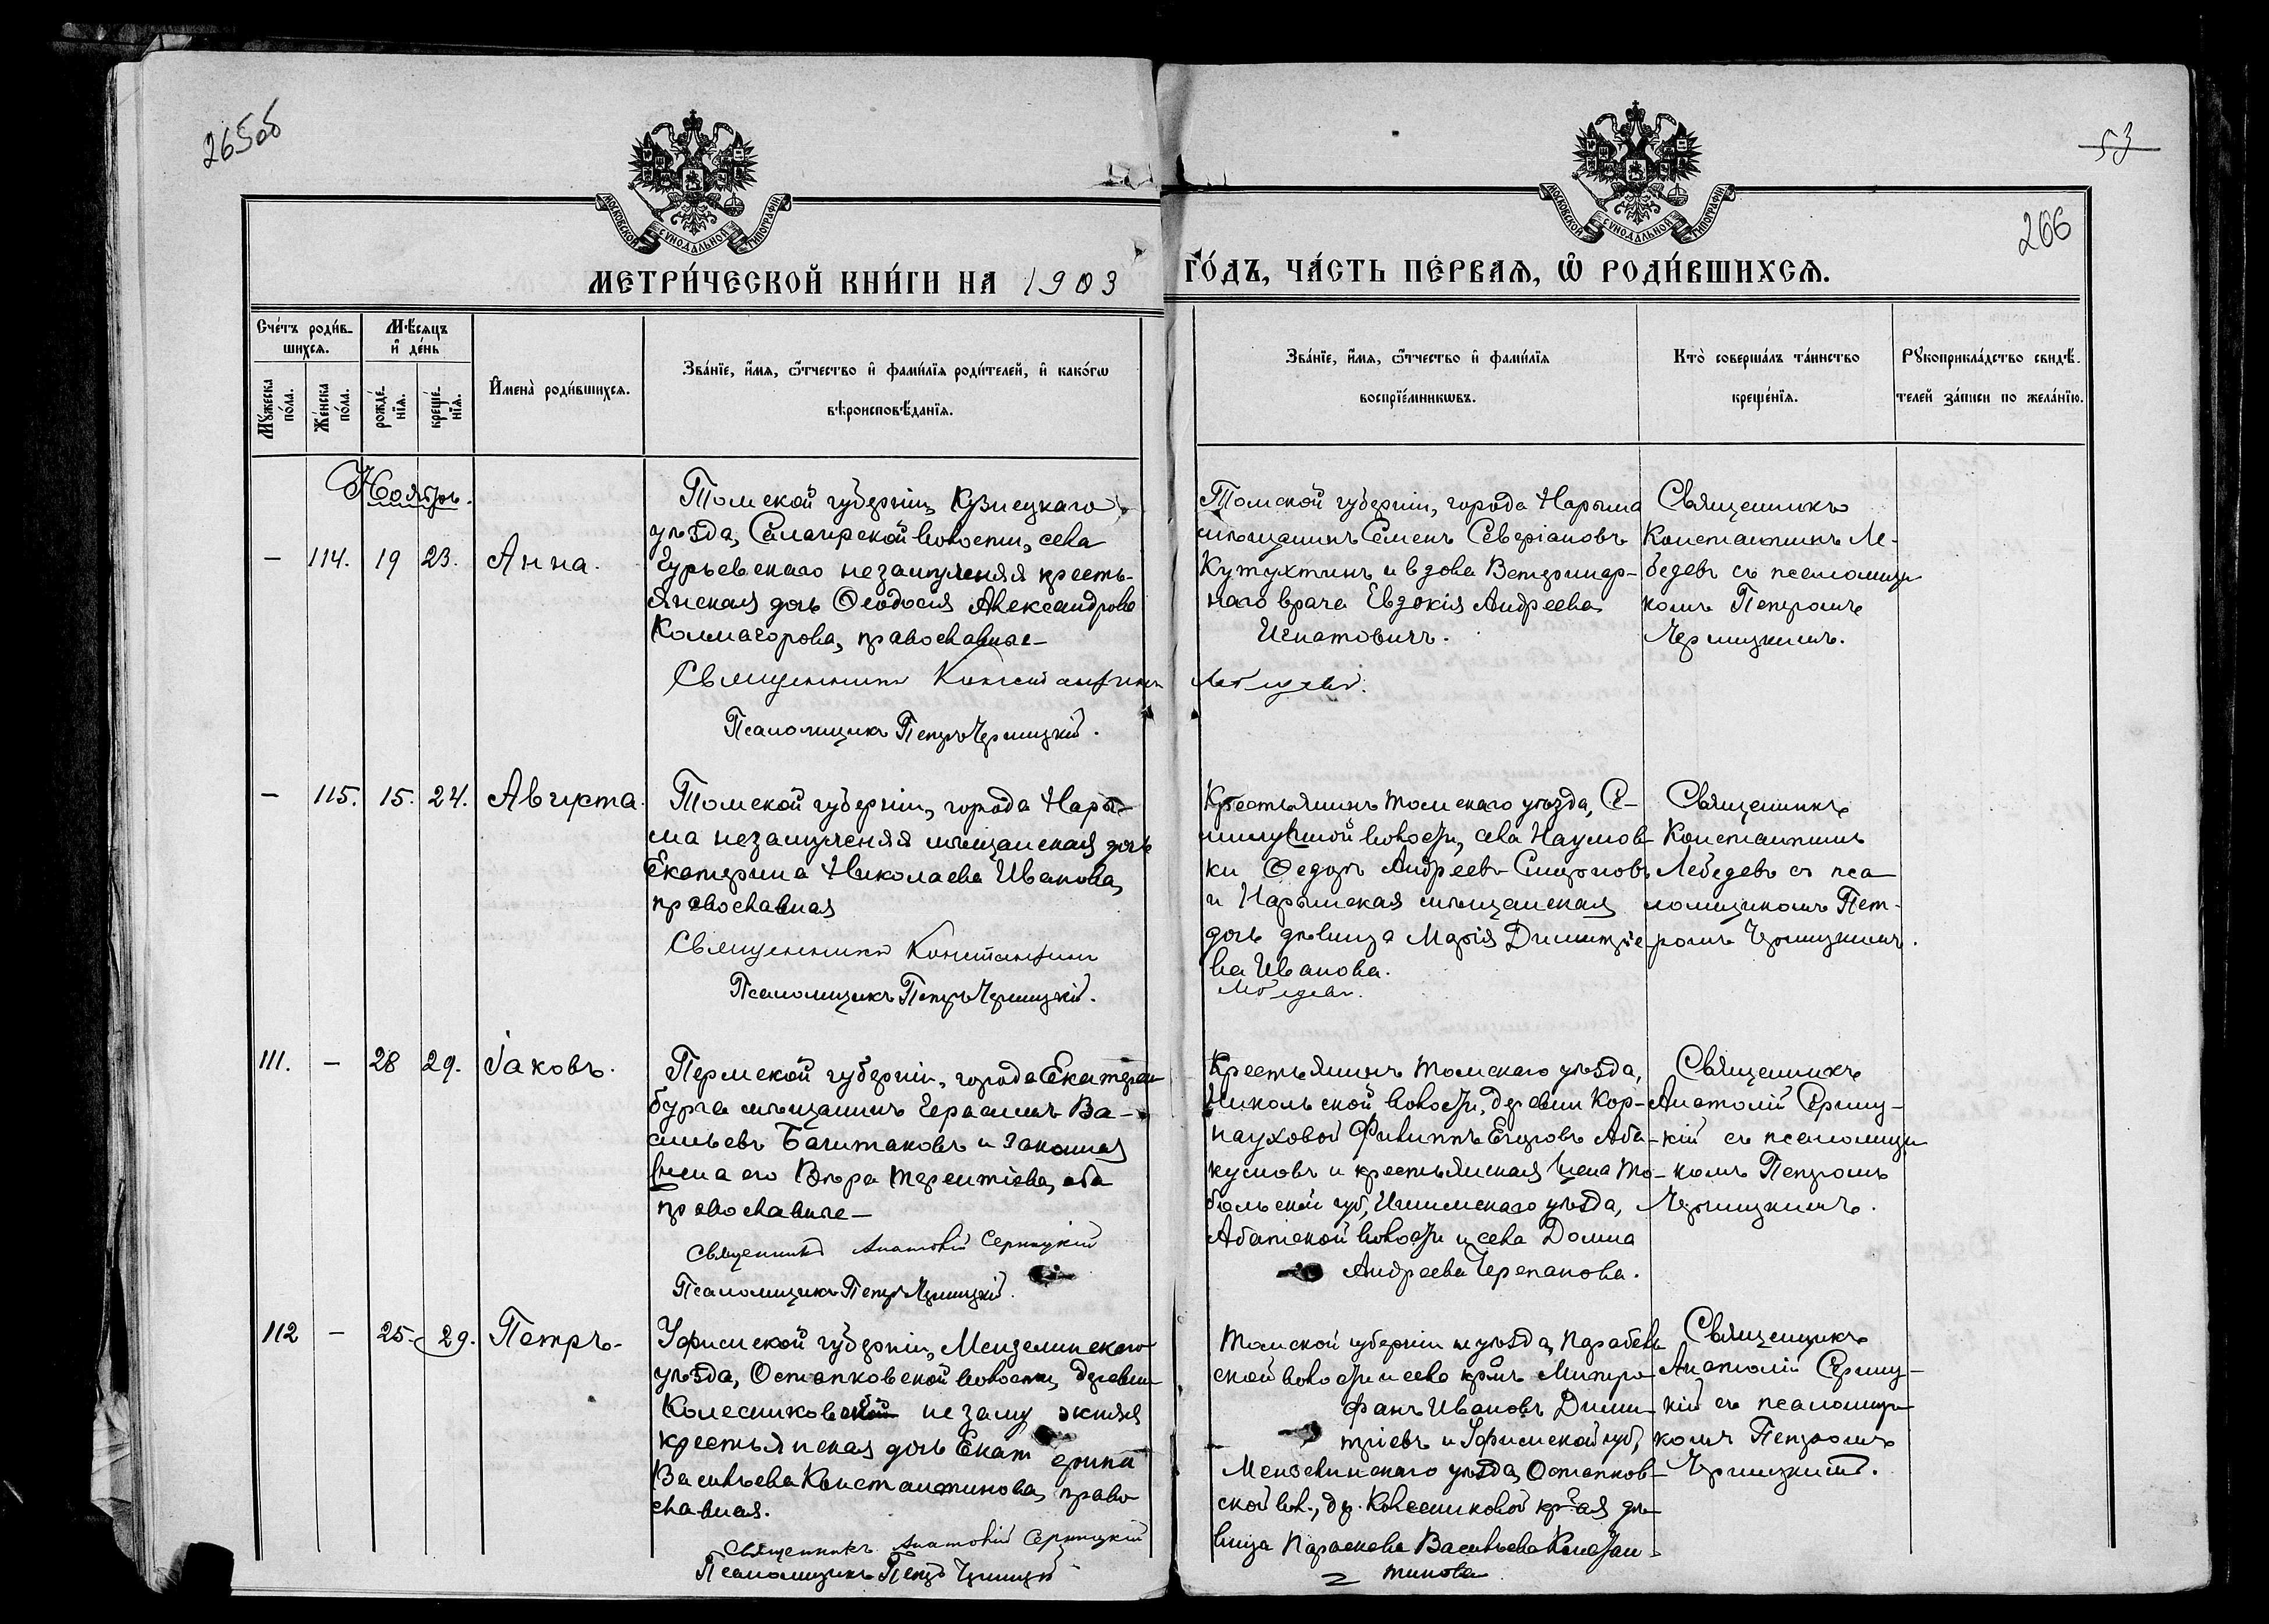 265об
53
266
МОСКОВСКОЙ СУНОДАЛЬНОЙ ТИПОГРАФІИ
МОСКОВСКОЙ СУНОДАЛЬНОЙ ТИПОГРАФІИ
МЕТРИ́ЧЕСКОЙ КНИ́ГИ НА 1903 ГО́ДЪ, ЧА́СТЬ ПЕ́РВАѦ, Ѡ҆ РОДИ́ВШИХСѦ.
Сче́тъ роди́в-
шихсѧ.
Мѣ́сѧцъ
и҆ де́нь
Мꙋ́жеска
по́ла.
Же́нска
по́ла.
рожде́-
нїѧ.
креще́-
нїѧ.
И҆мена̀ роди́вшихсѧ.
Зва́нїе, и҆́мѧ, ѻ҆́тчество и҆ фами́лїѧ роди́телей, и҆ како́гѡ
вѣроисповѣ́данїѧ.
Зва́нїе, и҆́мѧ, ѻ҆́тчество и҆ фами́лїѧ
воспрїе́мникѡвъ.
Кто̀ соверша́лъ та́инство
креще́нїѧ.
Рꙋкоприкла́дство свидѣ́-
телей за́писи по жела́нїю.
Ноябрь.
— 114. 19 23. Анна.
Томской губерніи, Кузнецкаго
уѣзда, Салаирской волости, села
Гурьевскаго незамужняя кресть-
янская дочь Ѳеодосія Александрова
Колмагорова, православные—
Священникъ Константинъ Лебедевъ.
Псаломщикъ Петръ Черницкій.
Томской губерніи, города Нарыма
мѣщанинъ Семенъ Северіановъ
Кутухтинъ и вдова Ветеринар-
наго врача Евдокія Андреева
Игнатовичъ.
Священникъ
Константинъ Ле-
бедевъ съ псаломщи
комъ Петромъ
Черницкимъ.
— 115. 15. 24. Августа.
Томской губерніи, города Нары-
ма незамужняя мѣщанская дочь
Екатерина Николаева Иванова,
православная
Священникъ Константинъ
Псаломщикъ Петръ Черницкій.
Крестьянинъ Томскаго уѣзда, Се-
волости, села Наумов-
ки Ѳедоръ Андреевъ Смирновъ
и Нарымская мѣщанская
дочь дѣвица Марія Димитріе-
ва Иванова.
Лебедевъ.
Священникъ
Константинъ
Лебедевъ съ пса-
ломщикомъ Пет-
ромъ Черницкимъ.
111. — 28 29. Іаковъ.
Пермской губерніи, города Екатерин
бурга мѣщанинъ Герасимъ Ва-
сильевъ Багитаковъ и законная
жена его Вѣра Терентіева, оба
православные—
Священникъ Анатолій Серницкій
Псаломщикъ Петръ Черницкій.
Крестьянинъ Томскаго уѣзда,
Никольской волости, деревни Кор-
науховой Филиппъ Егоровъ Аба-
кумовъ и крестьянская жена То-
больской губ., Ишимскаго уѣзда,
Абатской волости и села Домна
Андреева Черепанова.
Священникъ
Анатолій Серниц-
кій съ псаломщи
комъ Петромъ
Черницкимъ.
112 — 25. 29. Петръ.
Уфимской губерніи, Мензелинскаго
уѣзда, Останковской волости, деревни
Колесниковой незамужняя
крестьянская дочь Екатерина
Васильева Константинова, право
славная.
Священникъ Анатолій Серницкій
Псаломщикъ Петръ Черницкій
Томской губерніи и уѣзда, Парабель
ской волости и села кр-нъ Митро-
фанъ Ивановъ Дими-
тріевъ и Уфимской губ,
Мензелинскаго уѣзда, Останков-
ской вол., др. Колесниковой кр-ая дѣ-
вица Параскева Васильева Констан-
тинова
Священникъ
Анатолій Серниц-
кій съ псаломщи
комъ Петромъ
Черницкимъ.